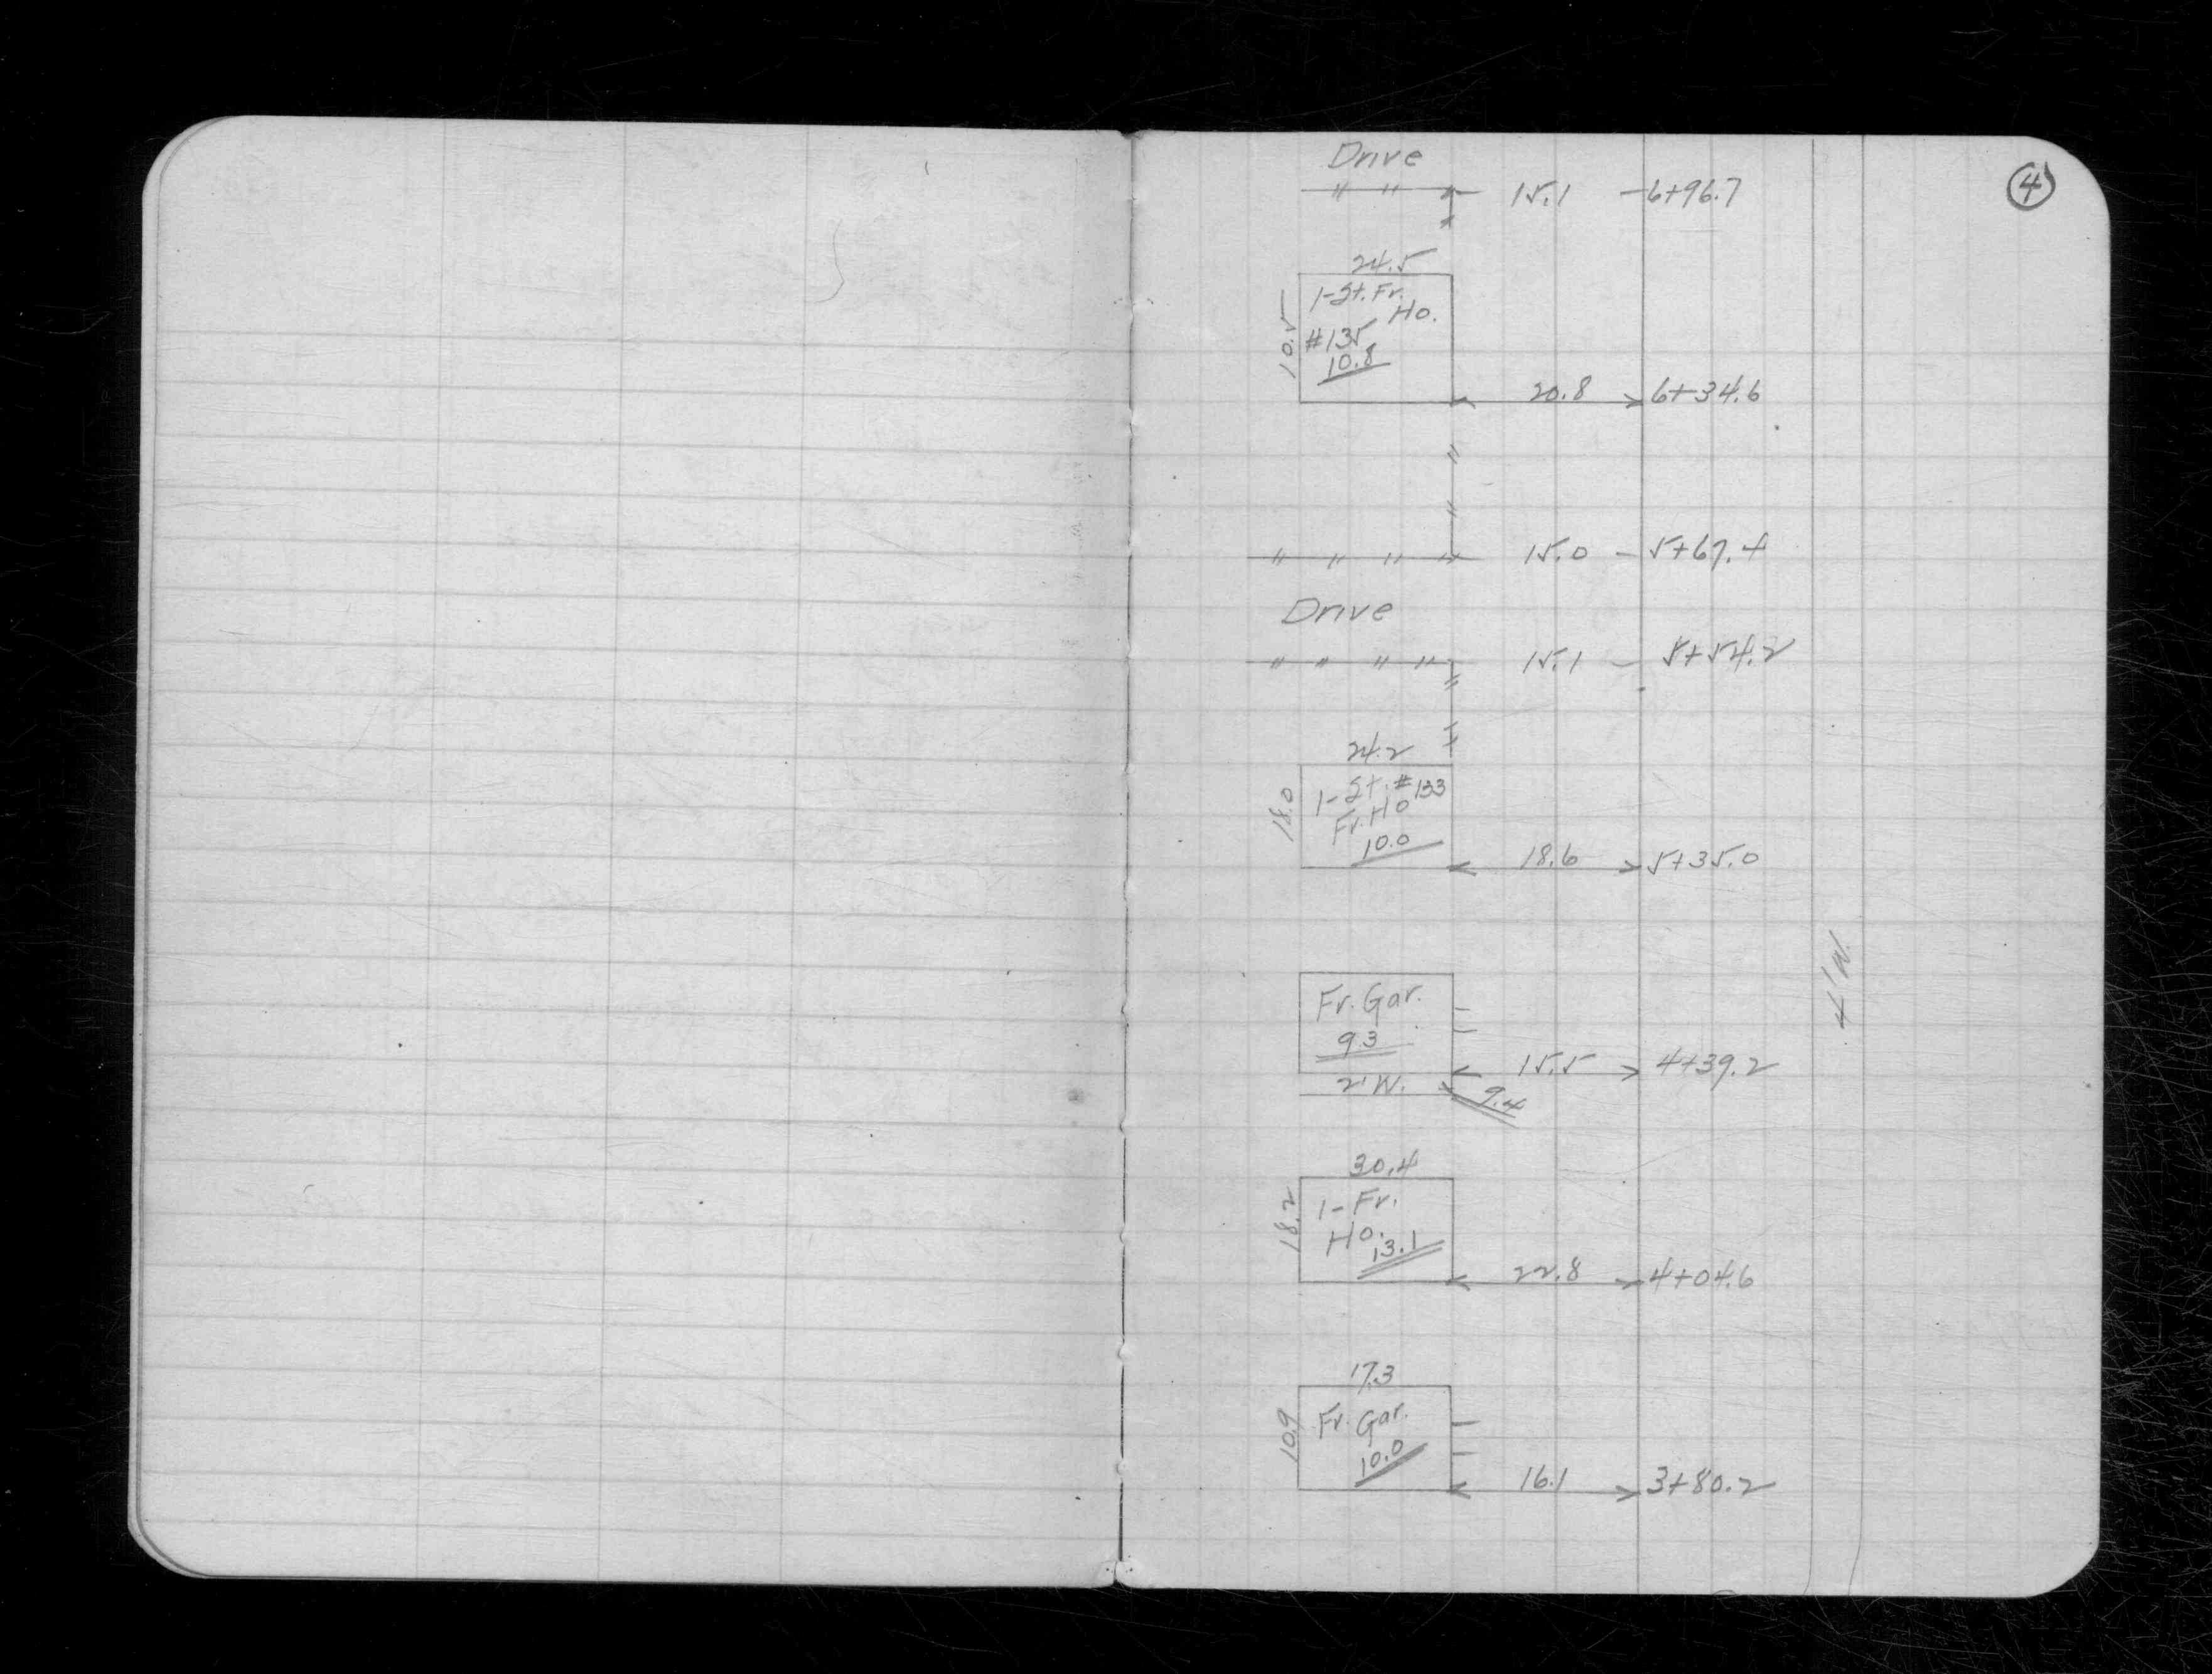 ④
Drive
" " " 15.1 - 6+96.7
"
24.5
1-St. Fr.
Ho.
10.5
#135
10.8
20.8 6+34.6
"
"
" " " " 15.0 - 5+67.4
Drive
" " " " 15.1 - 5+54.2
"
24.2
1-St. #133
18.0
Fr. Ho
10.0
18.6 5+35.0
4' W.
Fr. Gar.
9.3
15.5 4+39.2
2' W.
9.4
30.4
1-Fr.
18.2
Ho.
13.1
22.8 4+04.6
17.3
Fr. Gar.
10.9
10.0
16.1 3+80.2